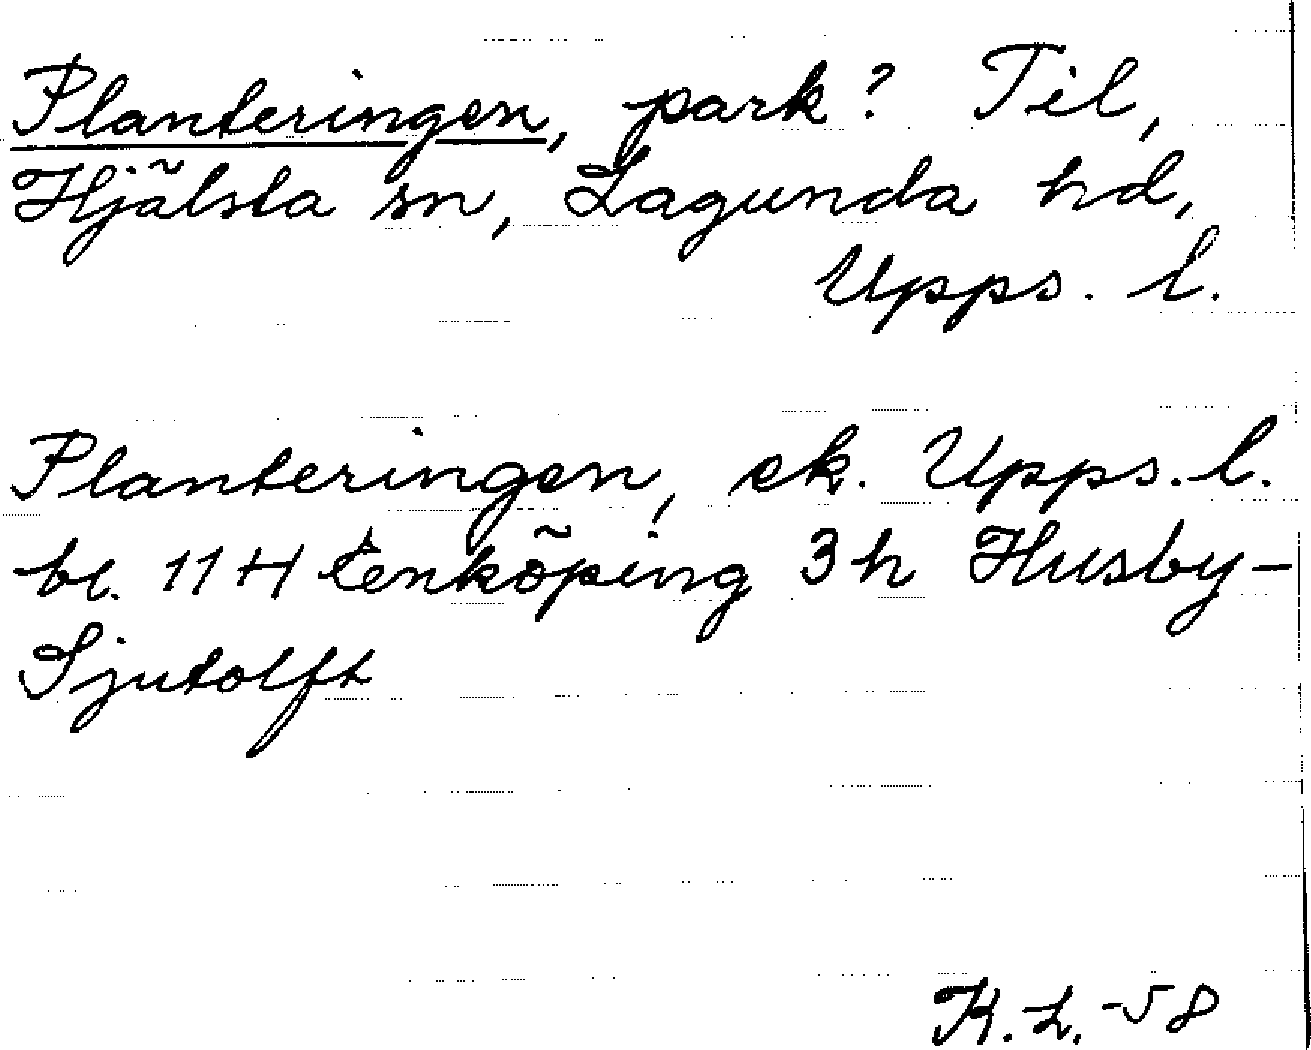 Planteringen, park? Til,
Hjälsta sn, Lagunda hd,
Upps. l.
Planteringen, ek. Upps. l.
bl. 11 H Enköping 3h Husby-
Sjutolft
K. L. -58